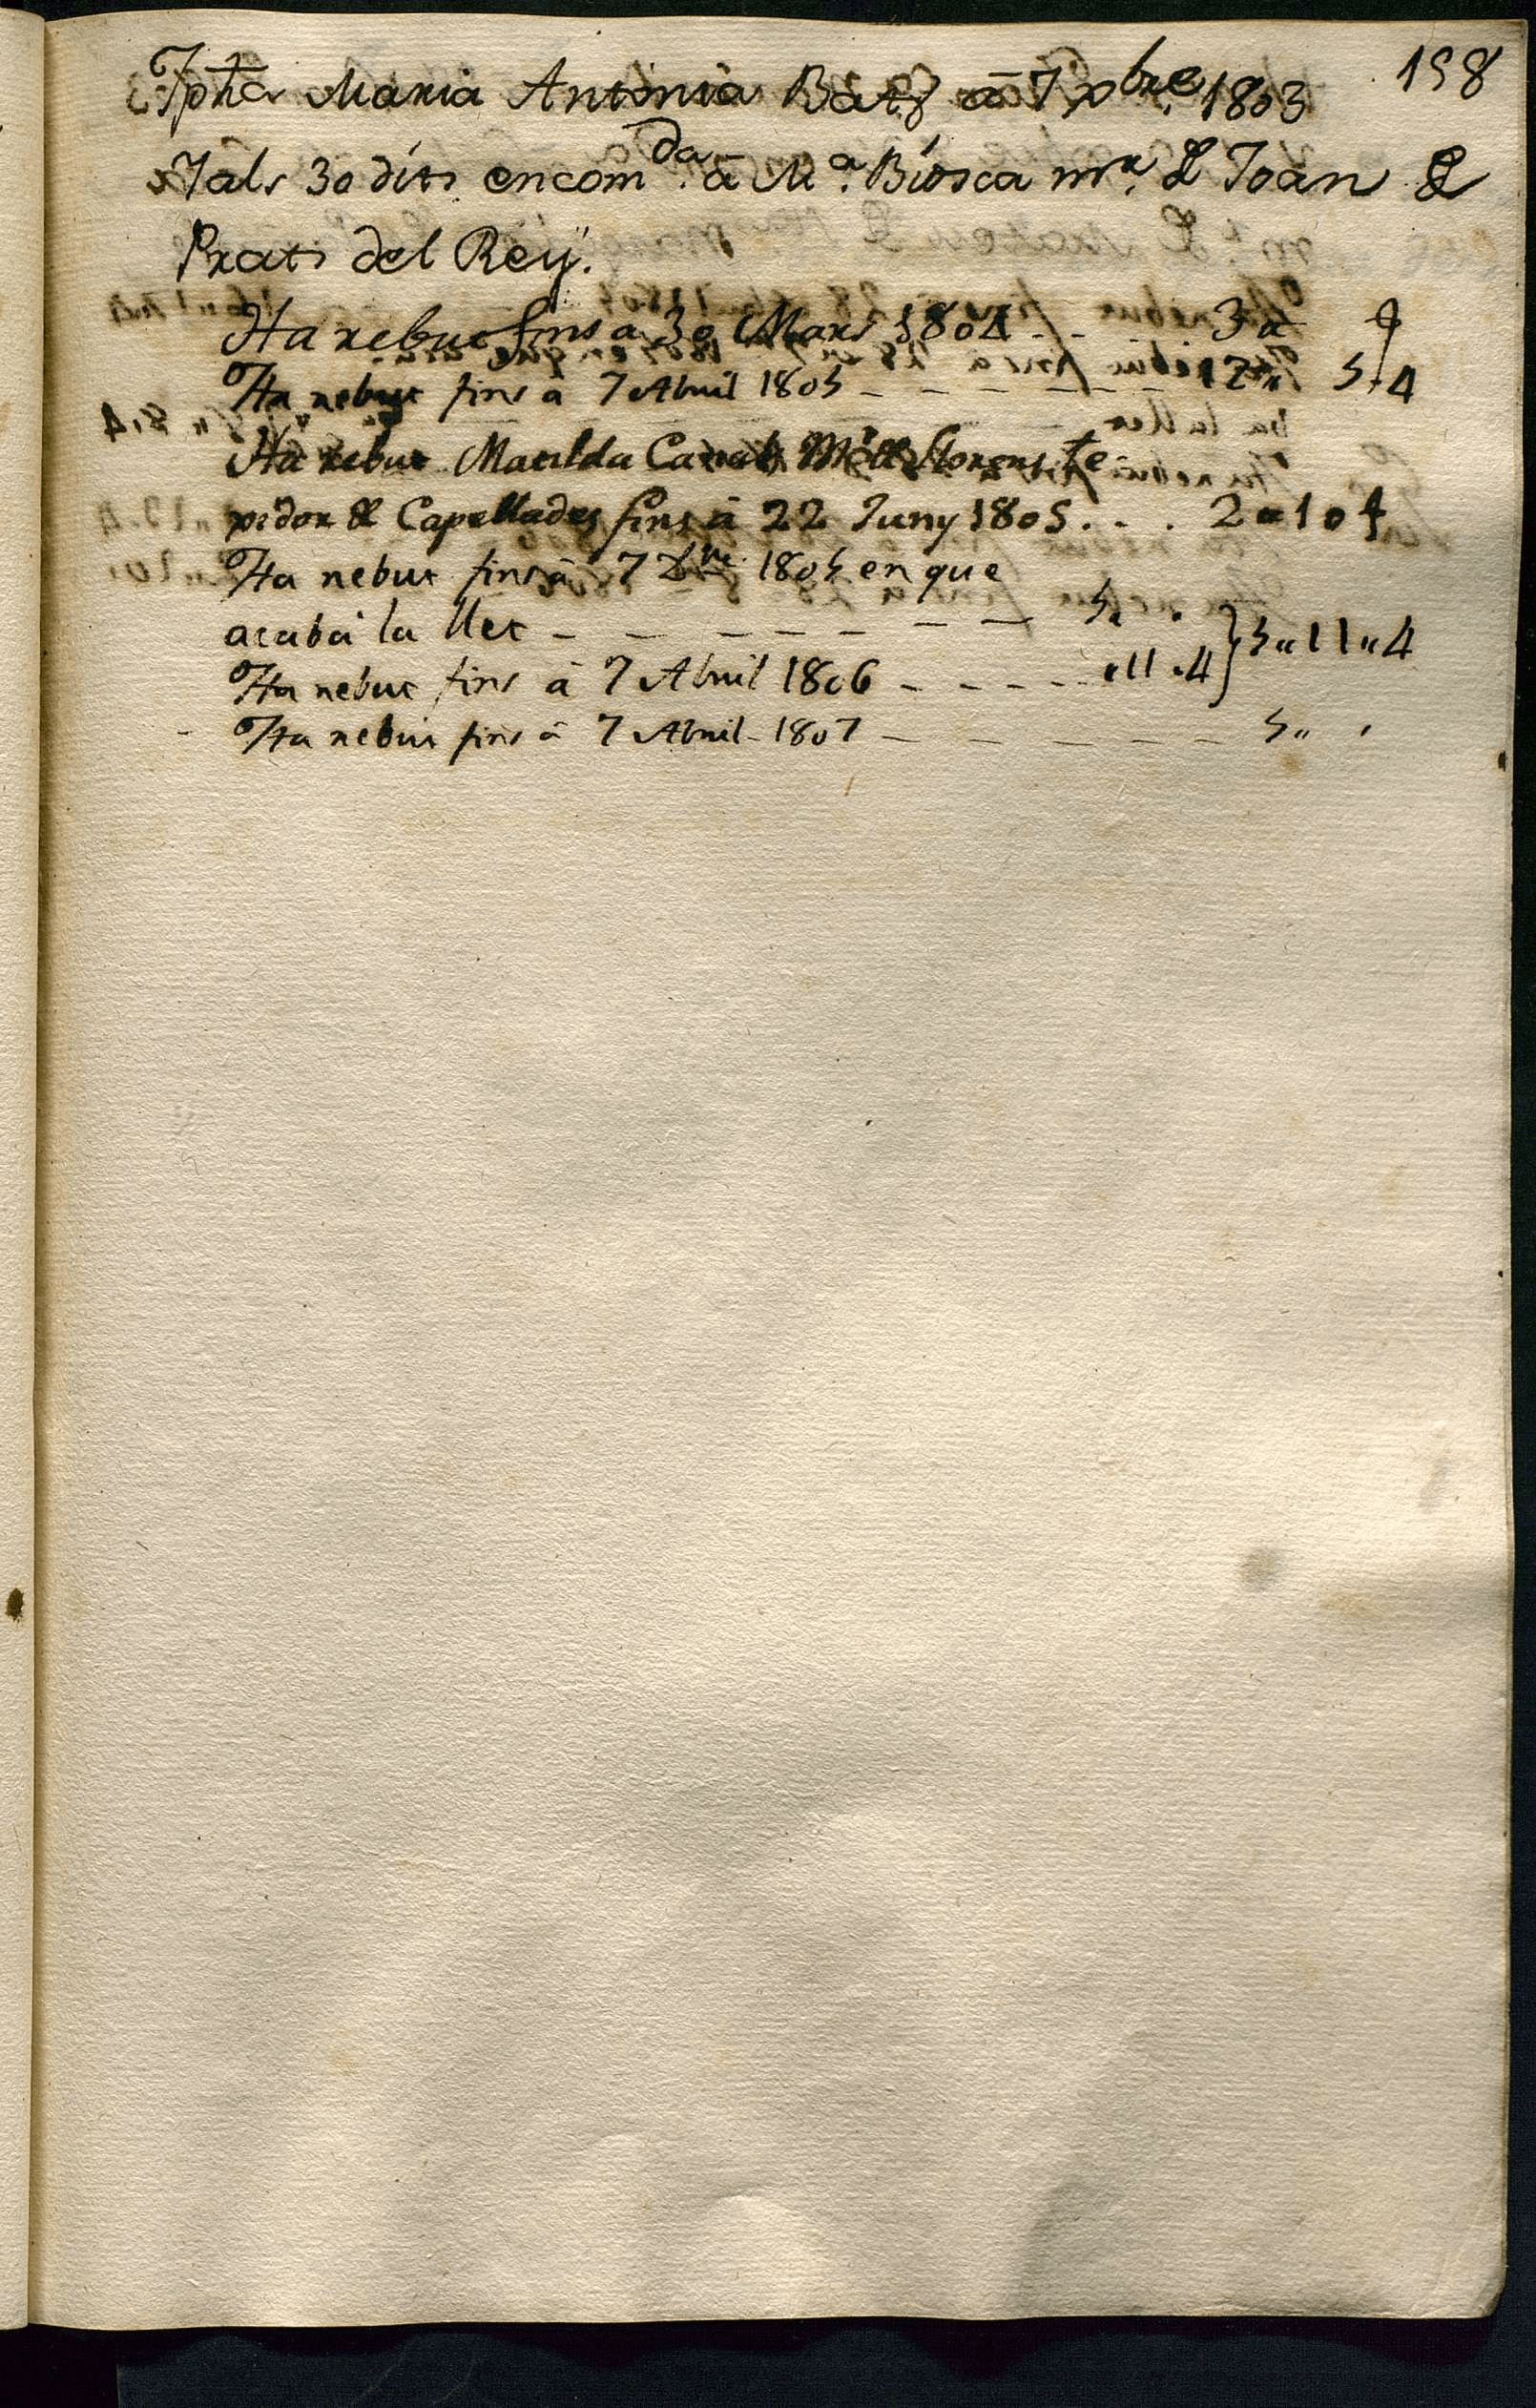 198
Ipha Maria Antonia Batz a 7 xbre. 1803
Y als 30 dits encomda. á Ma. Biosca mr. & Joan &
Prats del Reÿ.
Ha rebut fins a 30 Mars 1804 - - 3 "
Ha rebut fins a 7 Abril 1805 - - - - - - 12 " 5.4
Ha rebut Matilda Mr. Llorens te-
xidor & Capellades fins á 22 Juny 1805 . . . 2 " 10 4
Ha rebut fins á 7 1805 en que
acabá la llet - - - - - - - 5 "
Ha rebut fins á 7 Abril 1806 - - - - " 11 . 4 } 5 " 11 " 4
Ha rebut fins á 7 Abril 1807 - - - - - - 5 "